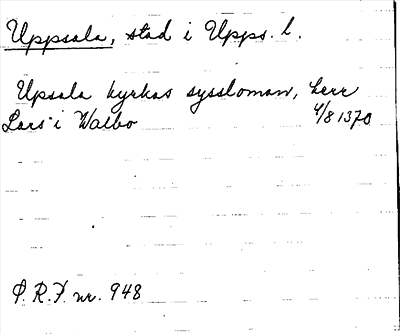 Uppsala, stad i Upps. l.
Upsala kyrkas syssloman, herr
Lars i Walbo 4/8 1370
P. R. F. nr. 948